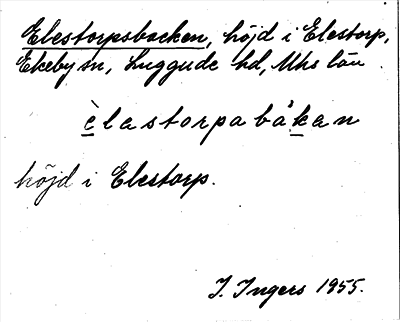 Elestorpsbacken, höjd i Elestorp,
Ekeby sn, Luggude hd, Mhs län
èlastorpabåkan
höjd i Elestorp.
I. Ingers 1955.